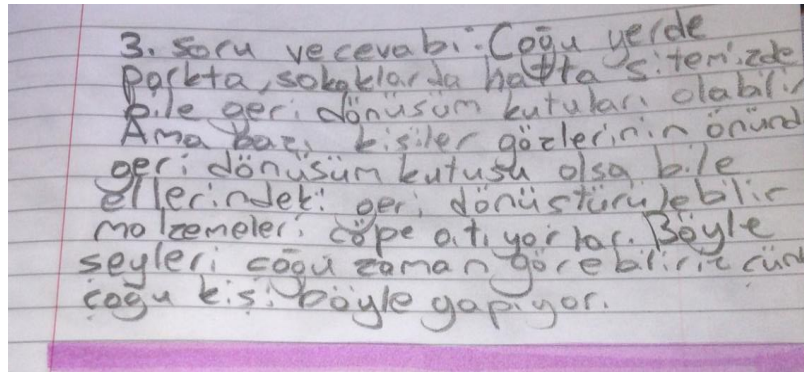 3. soru ve cevabi: Coğu yerde
parkta, sokaklarda hatta sitemizde
bile geri dönüsüm kutuları olabilir
Ama bazı kisiler gözlerinin önünd
geri dönüsüm kutusu olsa bile
ellerindeki geri dönüstürülebilir
malzemeleri cöpe atıyorlar. Böyle
seyleri coğu zaman görebiliriz cün
çoğu kişi böyle yapıyor.